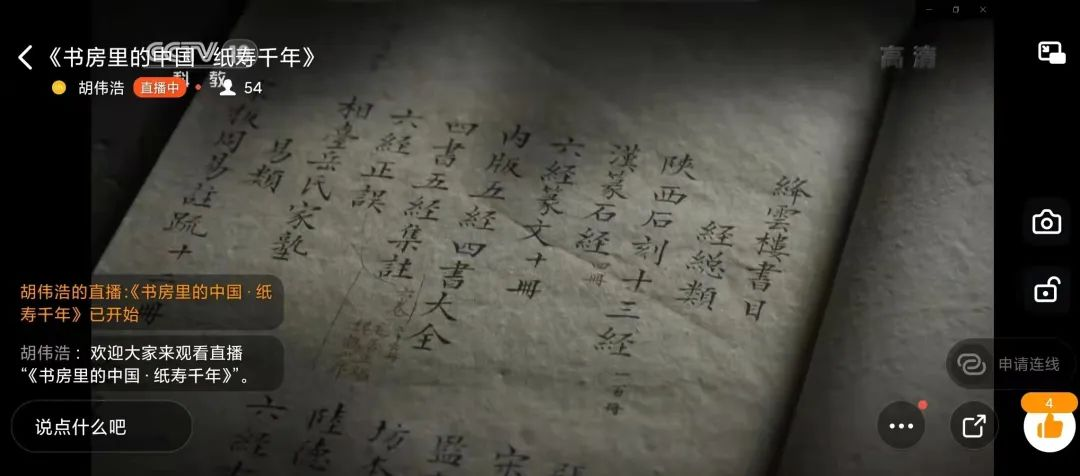 《书房里的中国·纸寿千年》
CCTV 10
科教
高清
胡伟浩
直播中
54
絳雲樓書目
經總類
陝西石刻十三經一百冊
漢篆石經四冊
六經篆文十冊
内版五經四書大全
四書五經集註
六經正誤
相臺岳氏家塾
易類
宋板周易註疏十
冊
六經
陸德
坊
監
宋
胡伟浩的直播:《书房里的中国·纸
寿千年》已开始
胡伟浩：欢迎大家来观看直播
“《书房里的中国·纸寿千年》”。
说点什么吧
申请连线
4